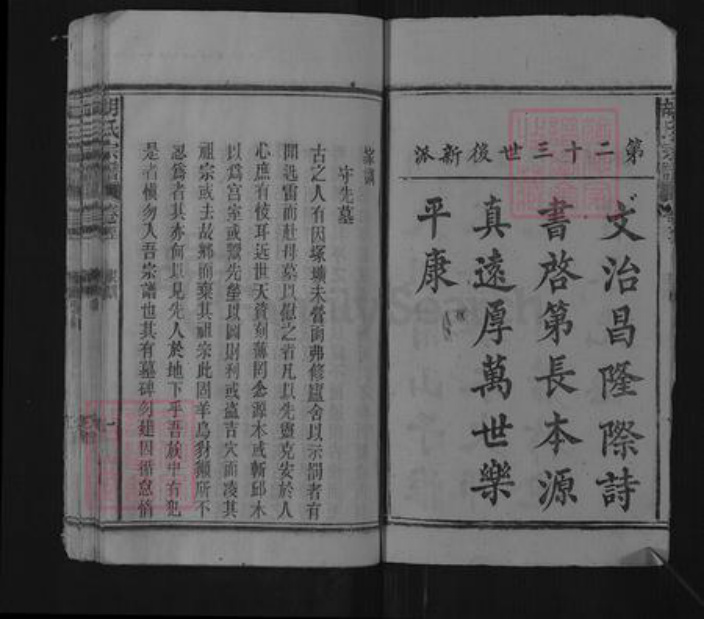 第二十三世後新派
文治昌隆際詩
書啓第長本源
真遠厚萬世樂
平康
家訓
守先墓
古之人有因塚壙未當而弗修廬舍以示罰者有
聞迅雷而赴母墓以慰之者凡以先靈克安於人
心庶有後耳近世天資刻薄罔念源木或斬邱木
以爲宮室或鬻先塋以圖財利或盜吉穴而凌其
祖宗或去故鄉而棄其祖宗此固羊烏豺獺所不
忍爲者其亦何以見先人於地下乎吾族中有犯
是者愼勿入吾宗譜也其有墓碑勿建因循怠惰
胡氏宗譜